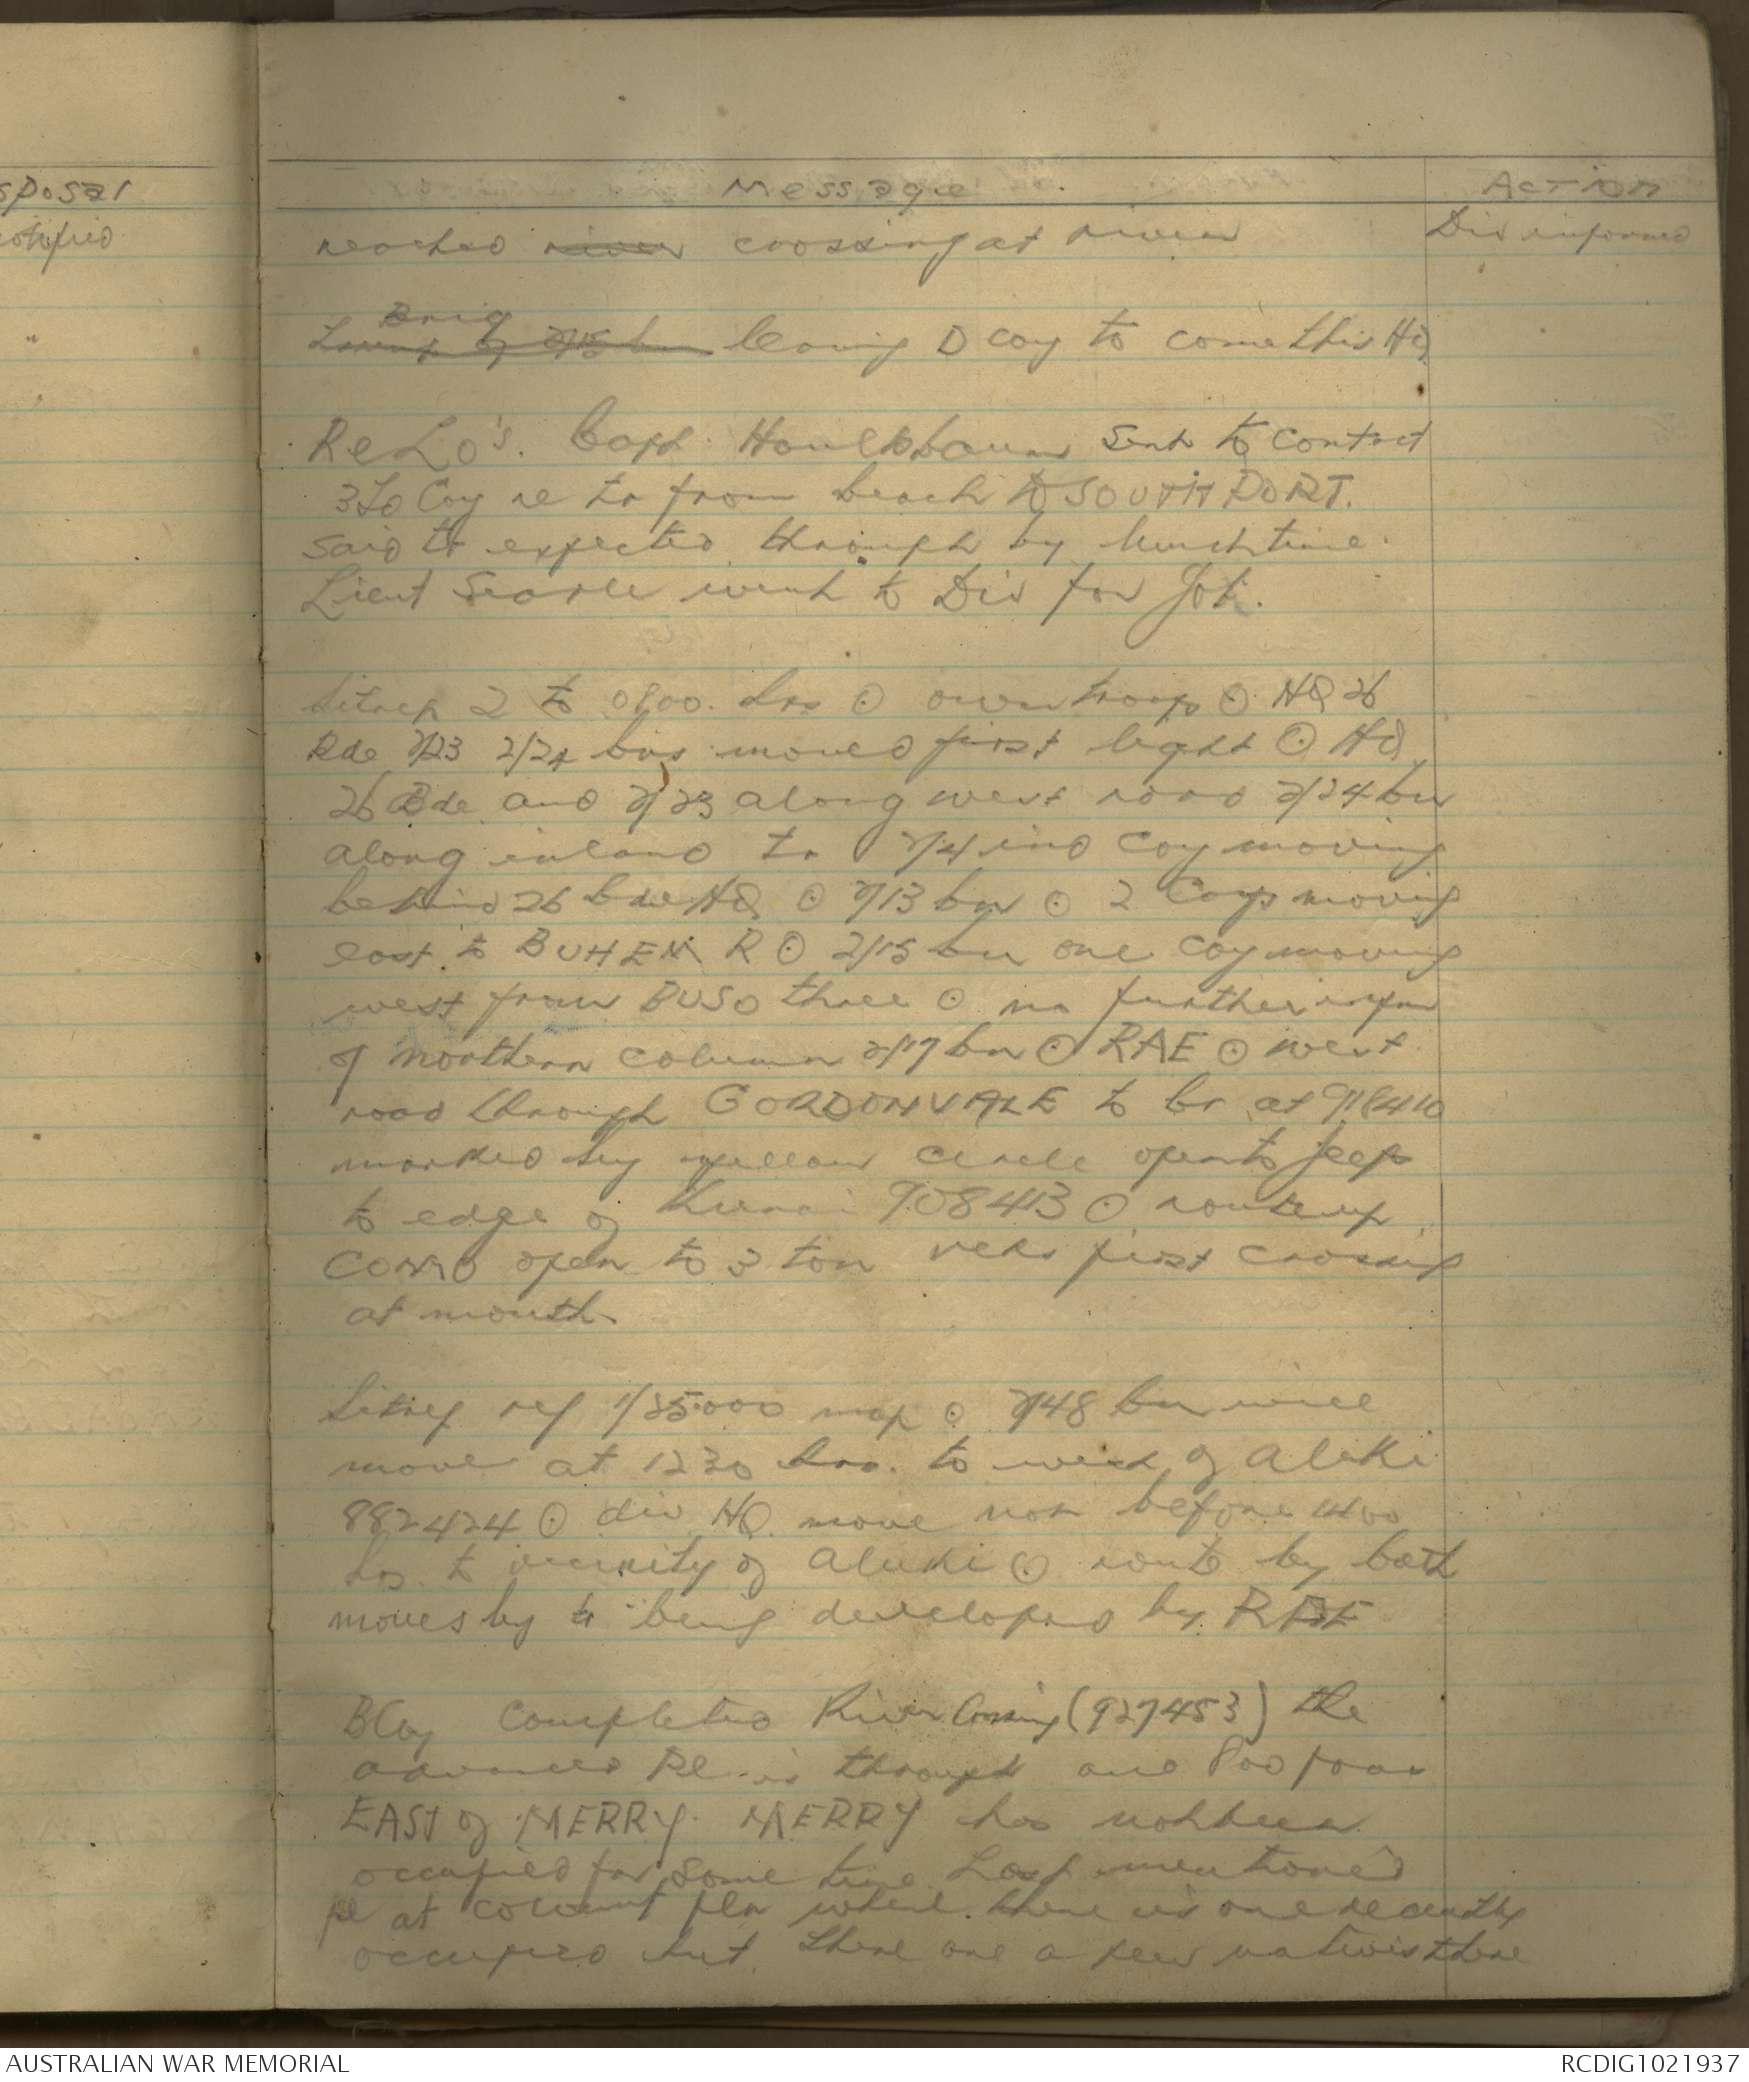 sposal
otified
Message
Action
reached river crossing at river
Div informed
Brig
2/15 bn leaving D coy to come this HQ
Re LO's. Capt. sent to contact
Coy re tr from beach to SOUTHPORT.
Said tr expected through by lunchtime.
Lieut Searle went to Div for Job.
Sitrep 2 to 0800 hrs ⊙ own troops ⊙ HQ 26
Bde 2/23 2/24 bns moved first light ⊙ HQ
26 Bde and 2/23 along west road 2/24 bn
along inland tr 2/4 ind Coy moving
behind 26 bde HQ ⊙ 2/13 bn ⊙ 2 Coys moving
east to BUHEM R ⊙ 2/15 bn one coy moving
west from BUSO three ⊙ no further infm
of northern column 2/17 bn ⊙ RAE ⊙ west
road through GORDONVALE to br at 918410
marked by yellow circle open to Jeep
to edge of Kunai 908413 ⊙ route up
COMO open to 3 ton vehs first crossing
at mouth.
Sitrep ref 1/25000 map ⊙ 2/48 bn will
move at 1230 hrs. to west of Aluki
882424 ⊙ div HQ move not before 1400
hrs to vicinity of Aluki ⊙ route by both
moves by tr being developed by RAE
B Coy completed River Crossing (927453) the
advanced Pl is through and 800
EAST of MERRY. MERRY has not been
occupied for some time. Last mentioned
pl at coconut pln where there is one recently
occupied hut. There are a few natives there
AUSTRALIAN WAR MEMORIAL
RCDIG1021937